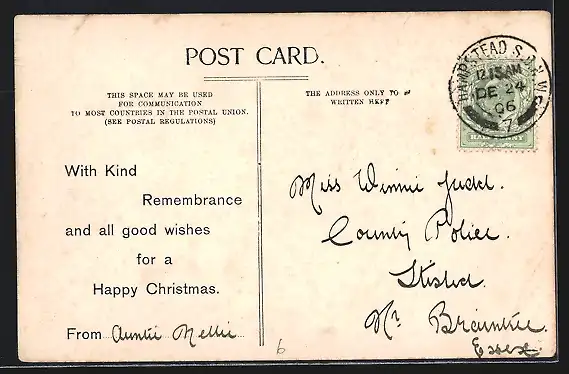 POST CARD.
THIS SPACE MAY BE USED
FOR COMMUNICATION
TO MOST COUNTRIES IN THE POSTAL UNION.
(SEE POSTAL REGULATIONS)
THE ADDRESS ONLY TO
WRITTEN
HAMPSTEAD S.O. N.W.
12.15 AM
DE 24
06
7
With Kind
Remembrance
and all good wishes
for a
Happy Christmas.
From Auntie Nellie
Miss Winnie Judd.
County Police.
Stisted.
Nr. Braintree.
Essex.
6